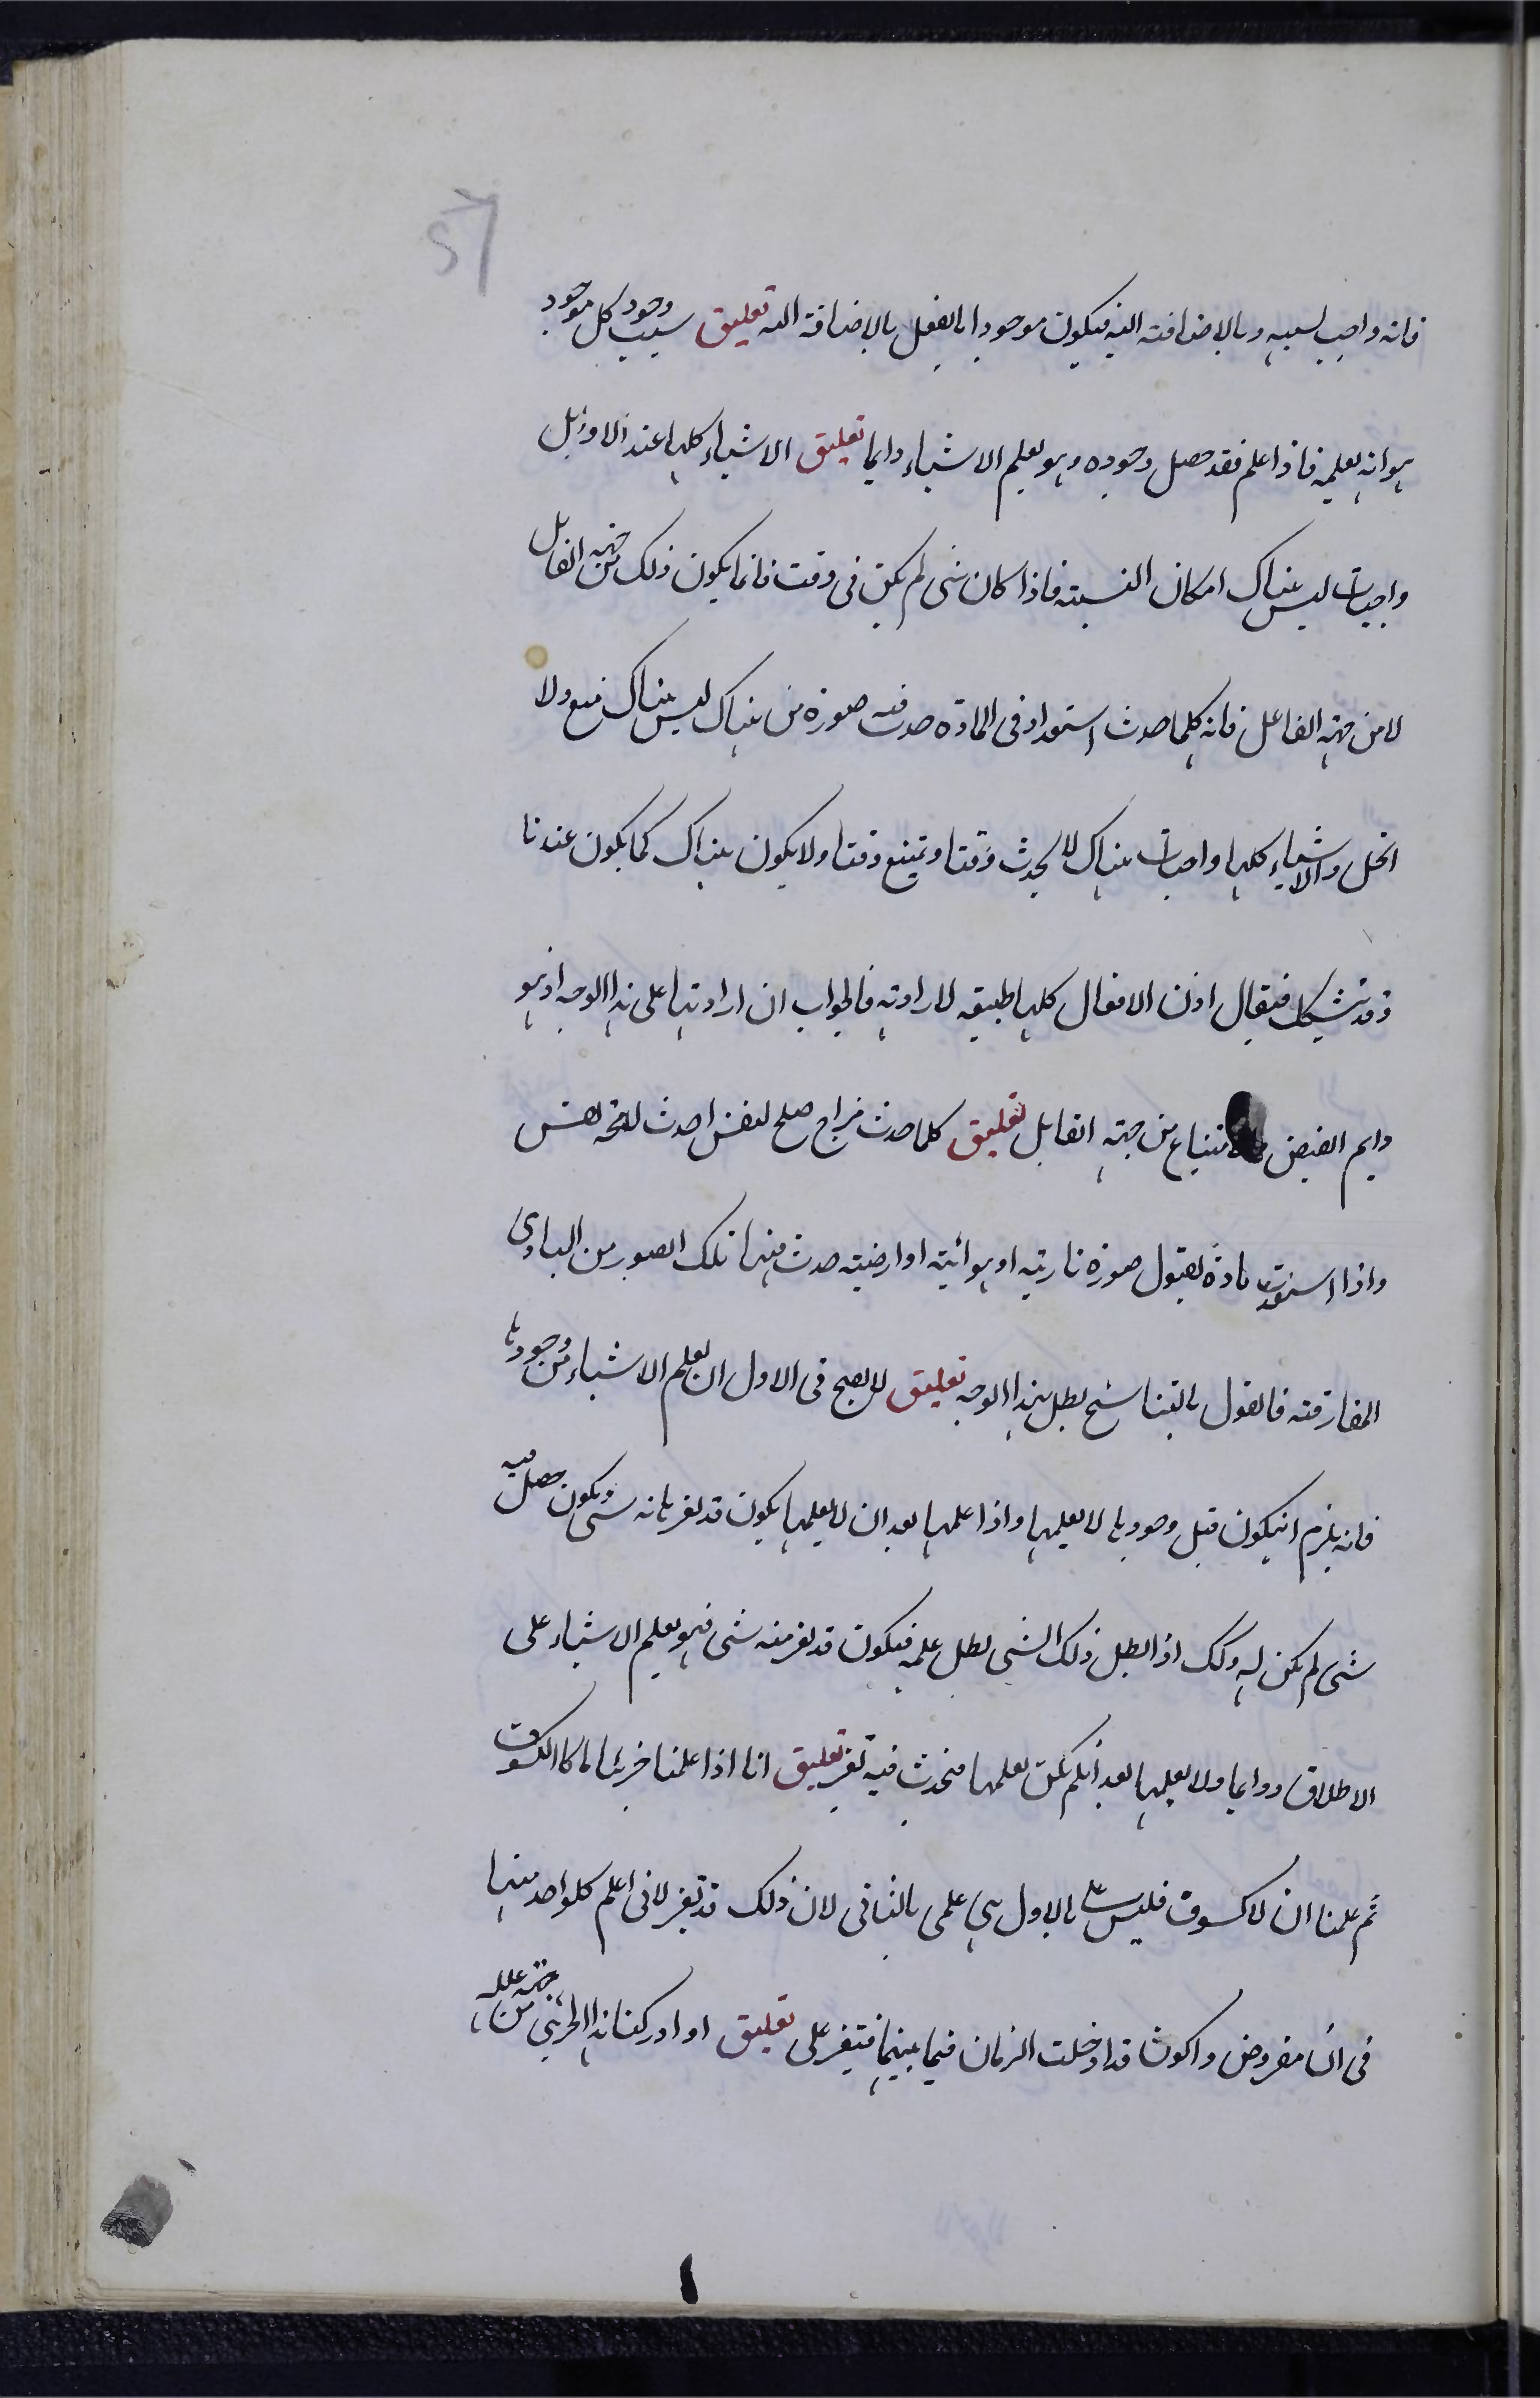 57
فانه واجب لسببه وبالاضافته اليه فيكون موجودا بالفعل بالاضافته اليه تعليق سبب وجود كل موجود
هو انه يعلمه فاذا علم فقد حصل وجوده وهو يعلم الاشياء دايما تعليق الاشياء كلها عند الاوئل
واجبات ليس هناك امكان النسبته فاذا كان شى لم يكن فى وقت فانما يكون ذلك من جهته القابل
لا من جهته الفاعل فانه كلما حدث استعداد فى المادة حدث فيه صورة من هناك ليس هناك منع ولا
بخل والاشياء كلها واجبات هناك لا يحدث وقتا ويمتنع وقتا ولا يكون هناك كما يكون عندنا
وقد يشكل فيقال اذن الافعال كلها طبيعيه لا اراديه فالجواب ان ارادتها على هذا الوجه اذ هو
دايم الفيض امتناع من جهته القابل تعليق كلما حدث مزاج صلح لنفس احدث لا محه نفس
واذا استعدت مادة لقبول صورة نارية او هوائية او ارضيته حدث فيها تلك الصور من المبادى
المفارقته فالقول بالتناسخ بطل بهذا الوجه تعليق لا يصح فى الاول ان يعلم الاشياء من وجودها
فانه يلزم انيكون قبل وجودها لا يعلمها واذا علمها بعد ان لا يعلمها يكون قد تغير بانه شى ويكون حصل فيه
شى لم يكن له وكك اذا بطل ذلك الشى بطل علمه فيكون قد تغير منه شى فهو يعلم الاشياء على
الاطلاق ودايما ولا يعلمها بعد انلم يكن يعلمها فيحدث فيه تغير تعليق انا اذا علمنا جزئيا ما كالكسوف
ثم علمنا ان لا كسوف فليس علمى بالاول هى علمى بالثانى لان ذلك قد تغير لانى اعلم كلواحد منها
فى آن مفروض واكون قد ادخلت الزمان فيما بينهما فتيغير على تعليق او ادركنا هذا الجزئى من جهته علله